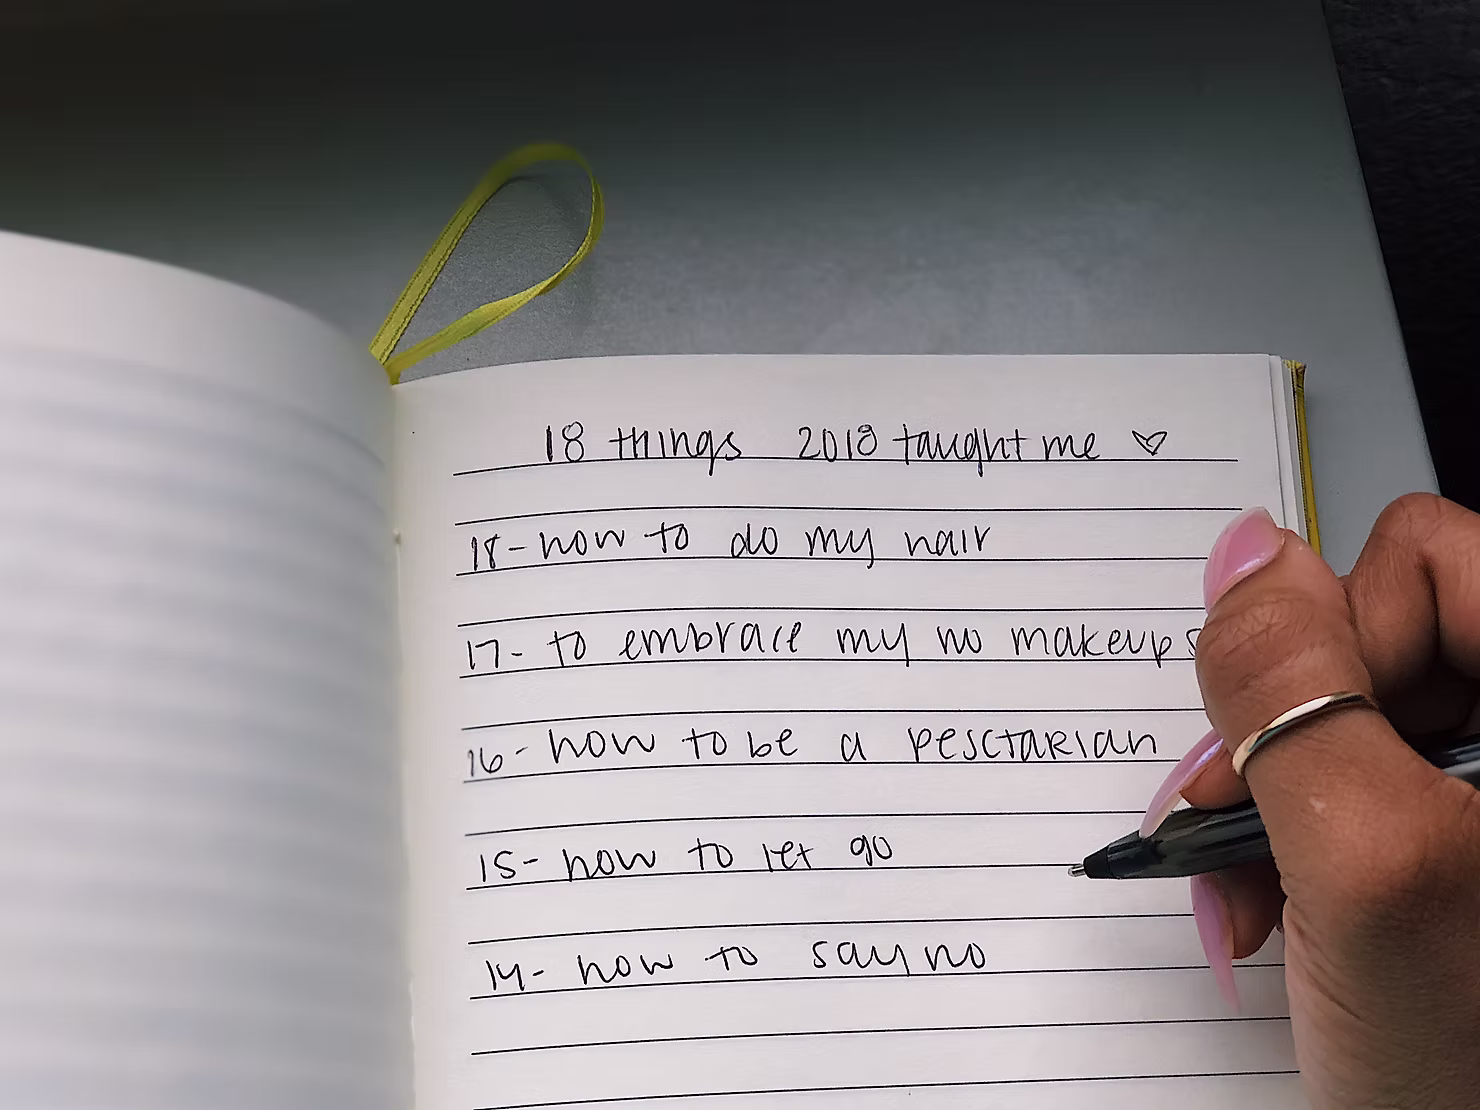 18 things 2018 taught me ♡
18- how to do my hair
17- to embrace my no makeup
16- how to be a pesctarian
15- how to let go
14- how to say no